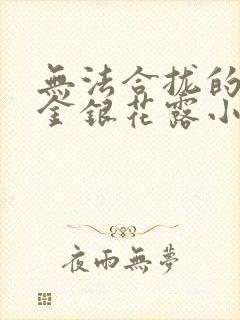 無法合拢的
金銀花露小
夜雨無夢